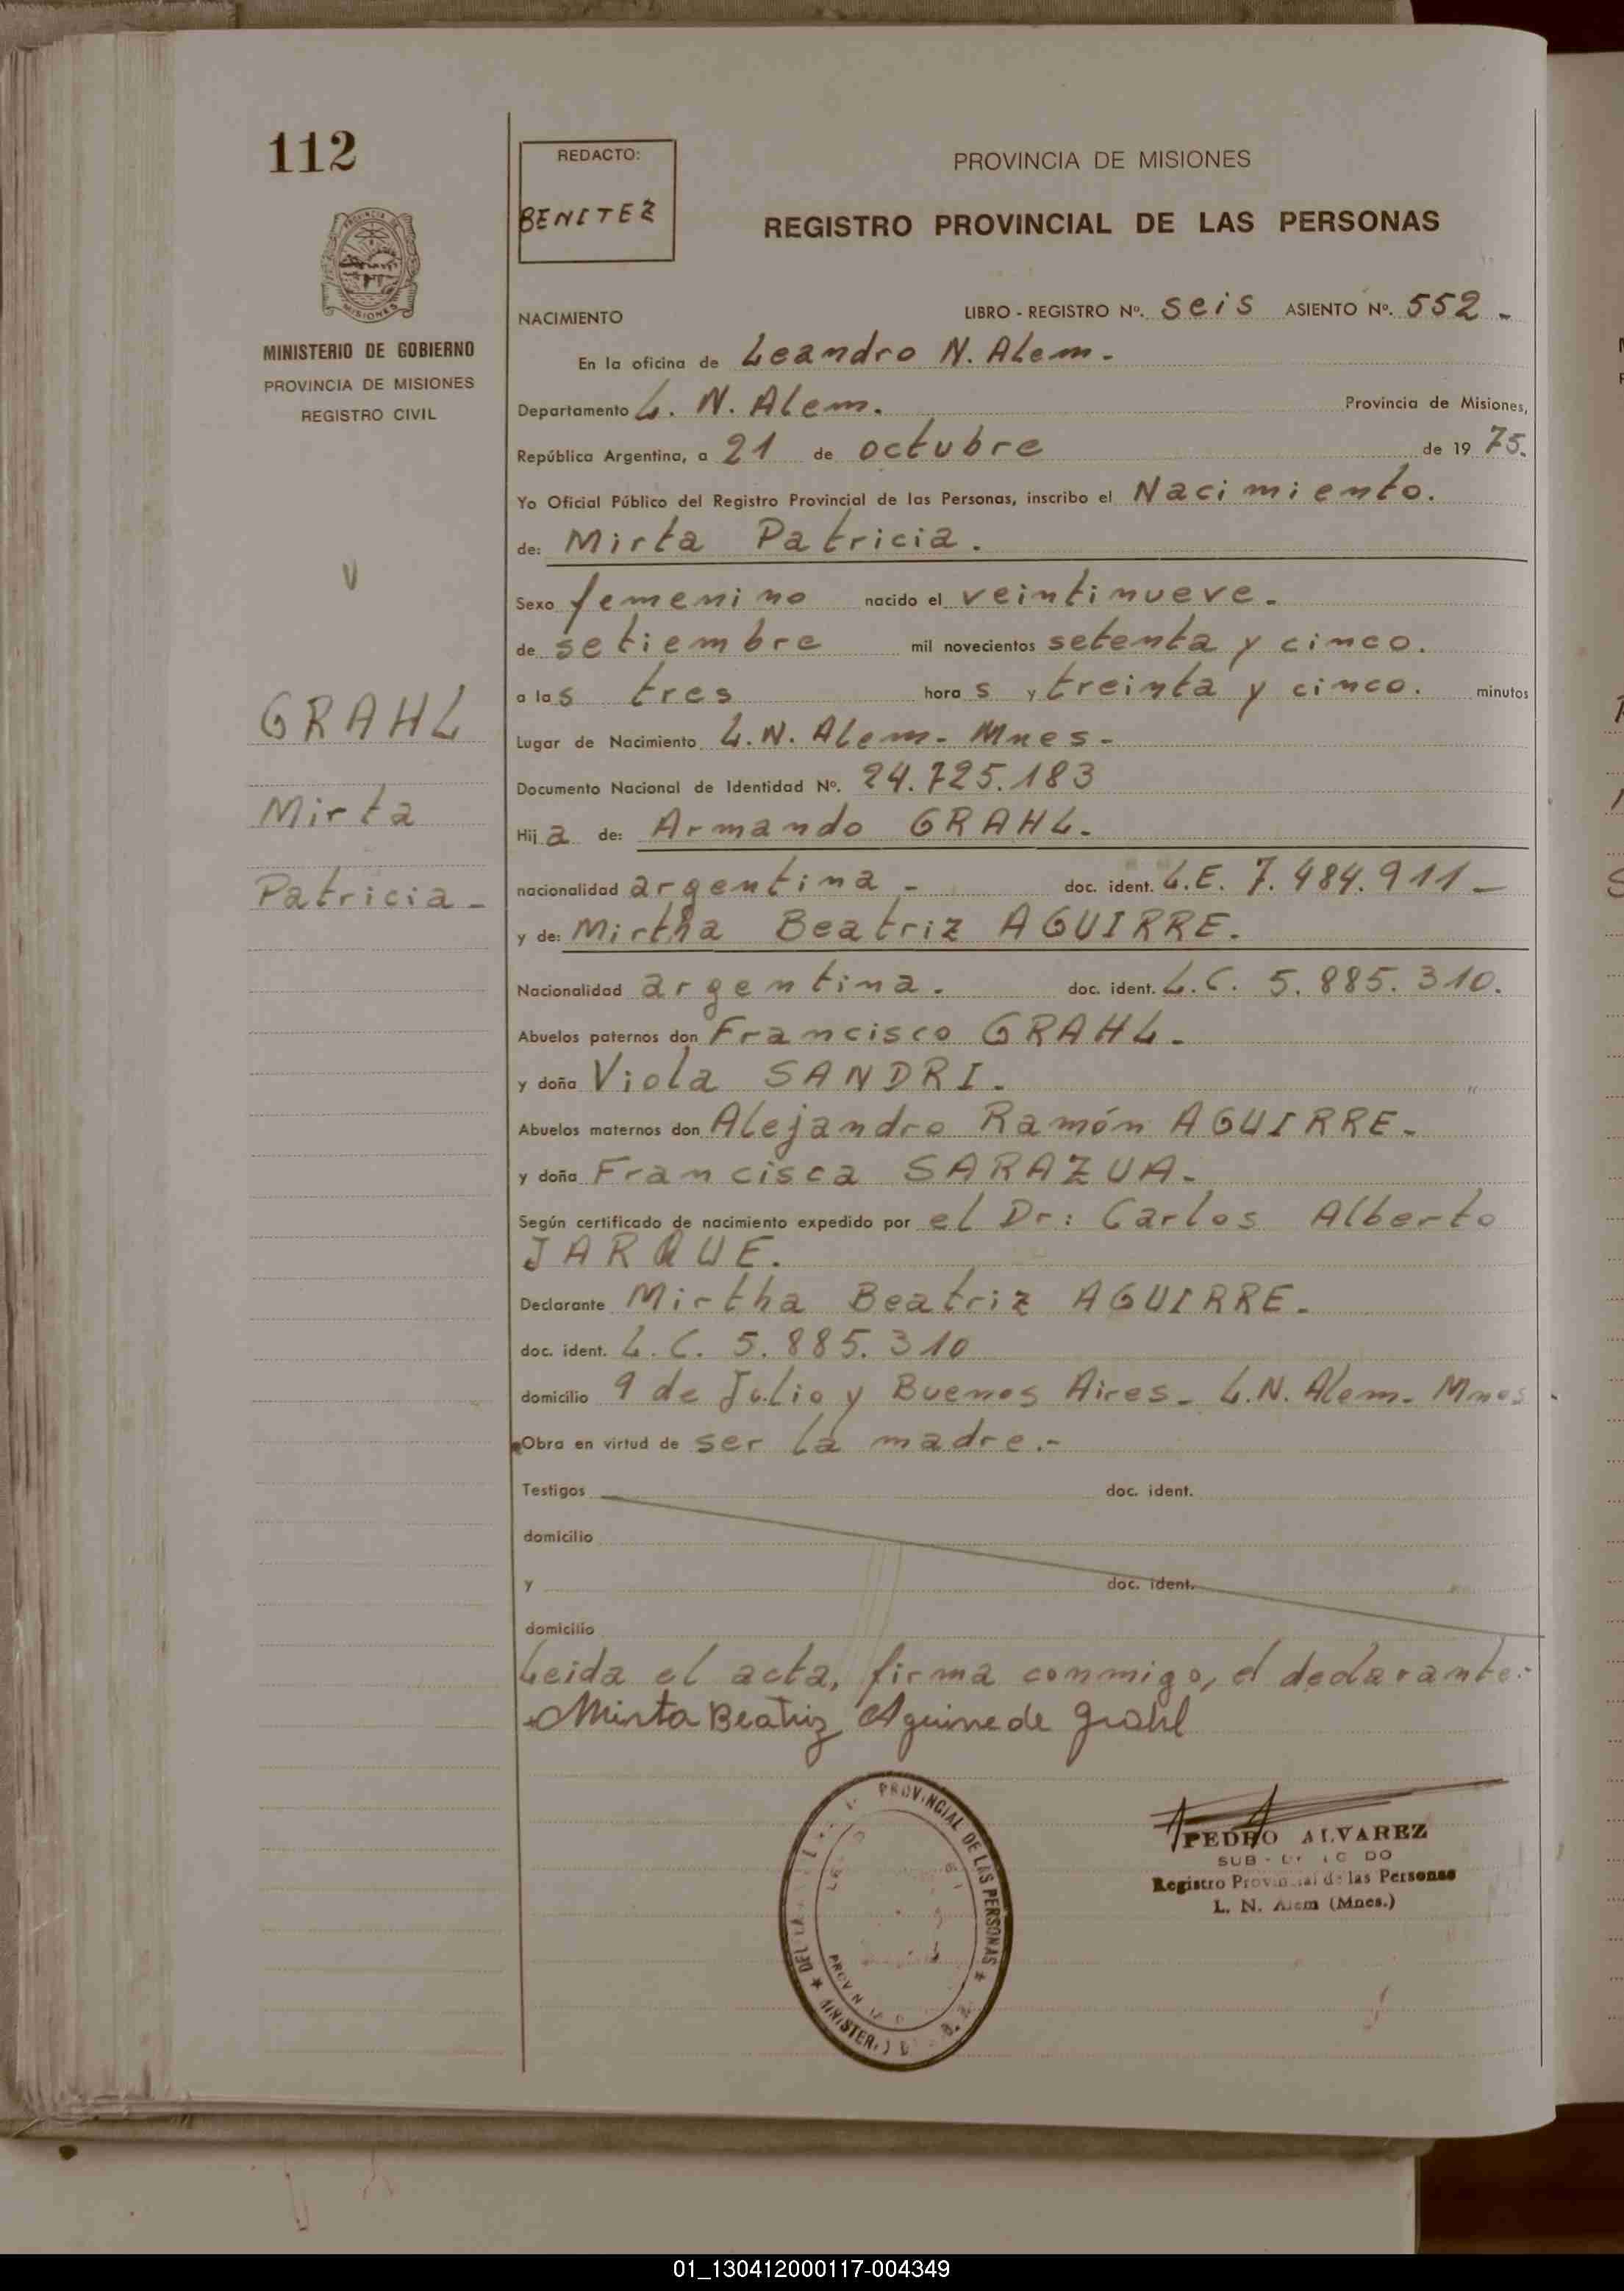 112
REDACTO:
BENITEZ
PROVINCIA DE MISIONES
REGISTRO PROVINCIAL DE LAS PERSONAS
PROVINCIA DE
MISIONES
MINISTERIO DE GOBIERNO
PROVINCIA DE MISIONES
REGISTRO CIVIL
NACIMIENTO LIBRO - REGISTRO Nº. seis ASIENTO Nº. 552 -
En la oficina de Leandro N. Alem.
Departamento L. N. Alem. Provincia de Misiones,
República Argentina, a 21 de octubre de 19 75.
Yo Oficial Público del Registro Provincial de las Personas, inscribo el Nacimiento.
de: Mirta Patricia.
Sexo femenino nacido el veintinueve.
de setiembre mil novecientos setenta y cinco.
a las tres horas y treinta y cinco. minutos
GRAHL
Lugar de Nacimiento L.N. Alem- Mnes-
Documento Nacional de Identidad Nº. 24.725.183
Mirta
Hija de: Armando GRAHL.
Patricia-
nacionalidad argentina - doc. ident. L.E. 7.484.911-
y de: Mirtha Beatriz AGUIRRE.
Nacionalidad argentina. doc. ident. L.C. 5.885.310.
Abuelos paternos don Francisco GRAHL-
y doña Viola SANDRI.
Abuelos maternos don Alejandro Ramón AGUIRRE-
y doña Francisca SARAZUA-
Según certificado de nacimiento expedido por el Dr: Carlos Alberto
JARQUE.
Declarante Mirtha Beatriz AGUIRRE-
doc. ident. L.C. 5.885.310
domicilio 9 de Julio y Buenos Aires- L.N. Alem- Mnes-
Obra en virtud de ser la madre.-
Testigos doc. ident.
domicilio
y doc. ident.
domicilio
Leida el acta, firma conmigo, el declarante:-
Mirta Beatriz Aguirre de Grahl
PROVINCIAL DE LAS PERSONAS
PEDRO ALVAREZ
Registro Provincial de las Personas
L. N. Alem (Mnes.)
01_130412000117-004349